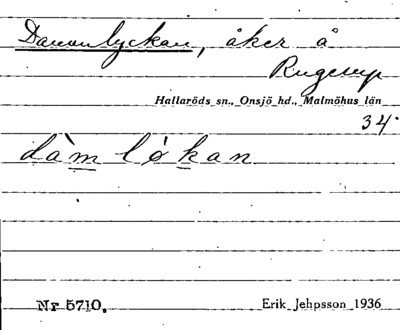 Dammlyckan, åker å
Rugerup
Hallaröds sn., Onsjö hd., Malmöhus län
34
dàm lökan
Nr 5710.
Erik Jehpsson 1936